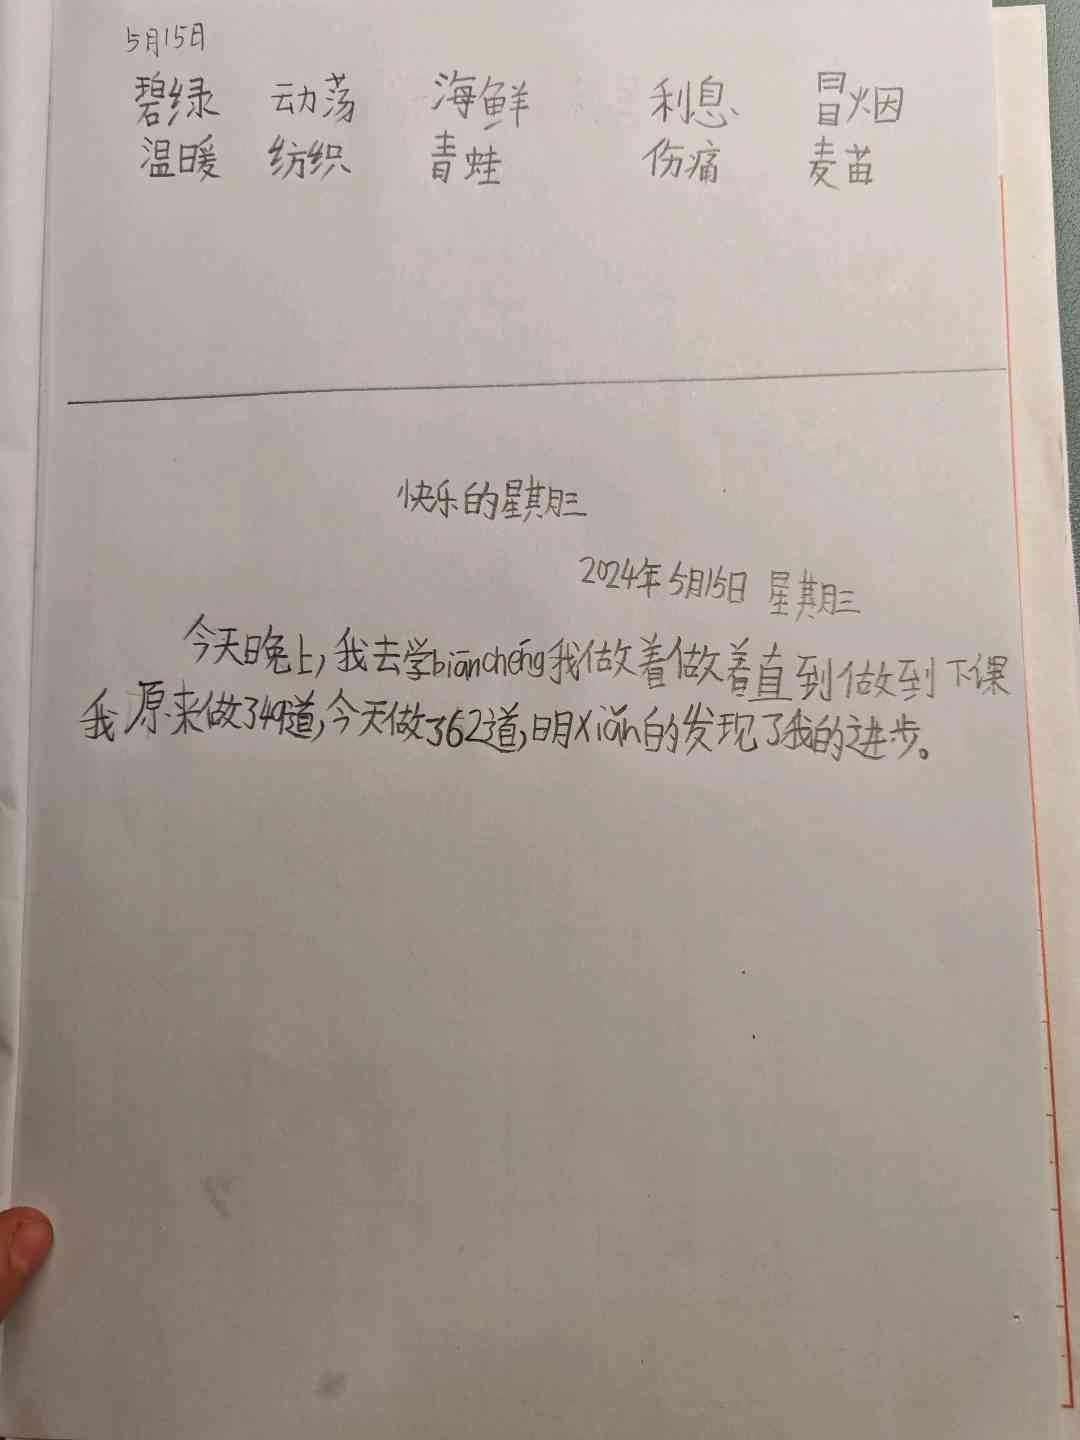 5月15日
碧绿 动荡 海鲜 利息 冒烟
温暖 纺织 青蛙 伤痛 麦苗
快乐的星期三
2024年5月15日 星期三
今天晚上,我去学biānchéng我做着做着直到做到下课
我原来做了49道,今天做了62道,明xiǎn的发现了我的进步。